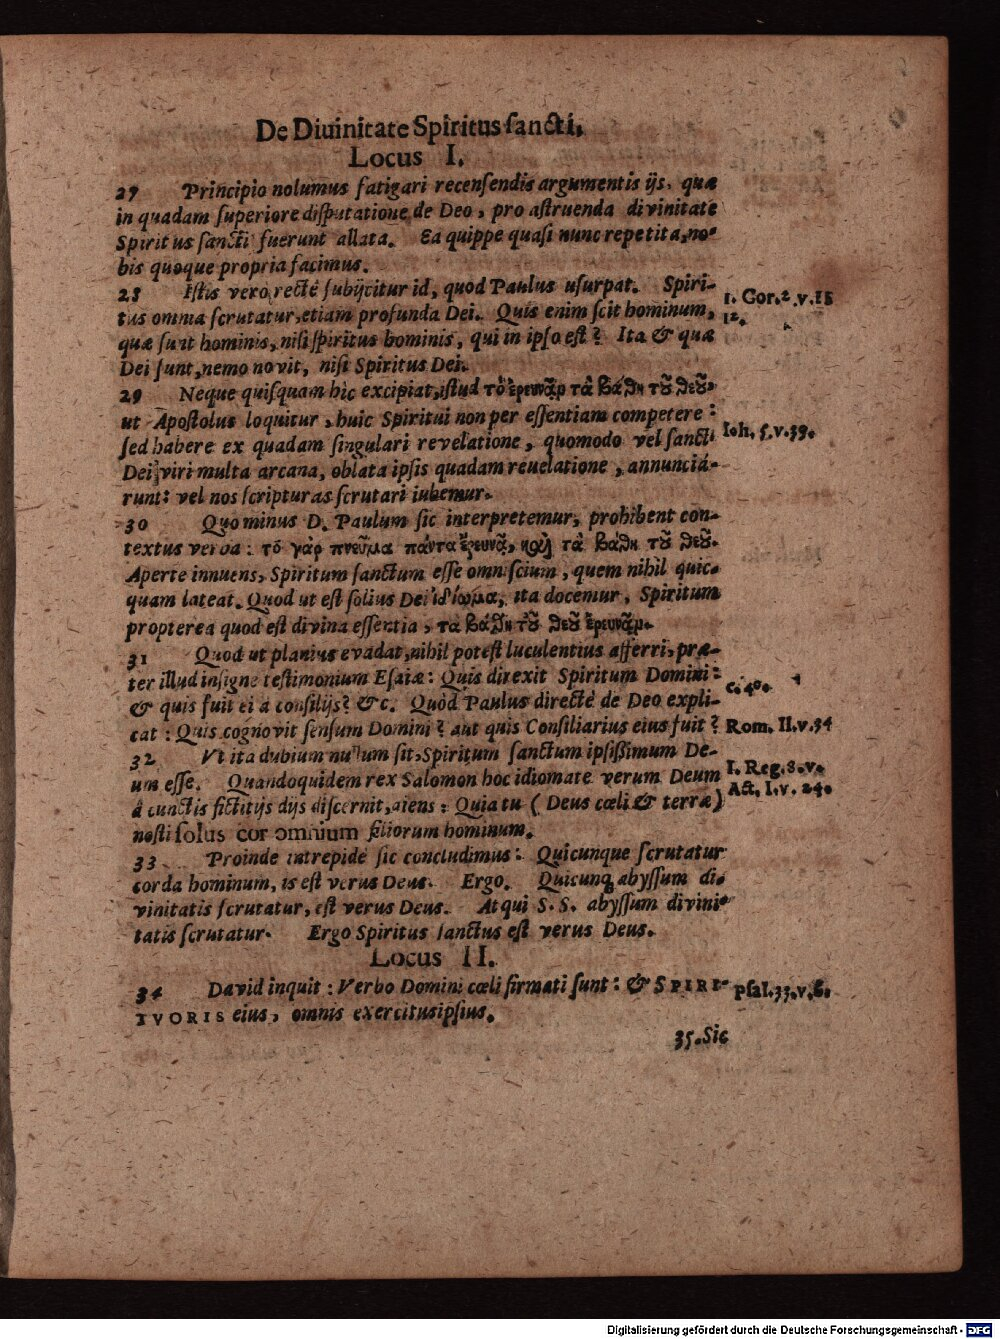 De Diuinitate Spiritus sancti.
Locus I.
27 Principio nolumus fatigari recensendis argumentis ijs, quæ
in quadam superiore disputatione de Deo, pro astruenda divinitate
Spiritus sancti fuerunt allata. Ea quippe quasi nunc repetita, no-
bis quoque propria facimus.
28 Istis vero rectè subijcitur id, quod Paulus usurpat. Spiri-
tus omnia scrutatur, etiam profunda Dei. Quis enim scit hominum,
quæ sunt hominis, nisi spiritus hominis, qui in ipso est? Ita & quæ
Dei sunt, nemo novit, nisi Spiritus Dei.
1. Cor. 2. v. 11
12.
29 Neque quisquam hîc excipiat, istud τὸ ἐρευνᾶν τὰ βάθη τοῦ θεοῦ,
ut Apostolus loquitur, huic Spiritui non per essentiam competere:
sed habere ex quadam singulari revelatione, quomodo vel sancti
Dei viri multa arcana, oblata ipsis quadam reuelatione, annunciá-
runt: vel nos scripturas scrutari iubemur.
Ioh. 5. v. 39.
30 Quo minus D. Paulum sic interpretemur, prohibent con-
textus verba: τὸ γὰρ πνεῦμα πάντα ἐρευνᾷ, καὶ τὰ βάθη τοῦ θεοῦ.
Aperte innuens, Spiritum sanctum esse omniscium, quem nihil quic-
quam lateat. Quod ut est solius Dei ἰδίωμα, ita docemur, Spiritum
propterea quod est divina essentia, τὰ βάθη τοῦ θεοῦ ἐρευνᾶν.
31 Quod ut planius evadat, nihil potest luculentius afferri, præ-
ter illud insigne testimonium Esaiæ: Quis direxit Spiritum Domini:
& quis fuit ei à consilijs? &c. Quòd Paulus directè de Deo expli-
cat: Quis cognovit sensum Domini? aut quis Consiliarius eius fuit?
c. 40.
Rom. II. v. 34
32 Vt ita dubium nullum sit, Spiritum sanctum ipsissimum De-
um esse. Quandoquidem rex Salomon hoc idiomate verum Deum
à cunctis fictitijs dijs discernit, aiens: Quia tu (Deus cœli & terræ)
nosti solus cor omnium filiorum hominum.
I. Reg. 8. v.
Act. I. v. 24.
33 Proinde intrepidè sic concludimus: Quicunque scrutatur
corda hominum, is est verus Deus. Ergo. Quicunq; abyssum di-
vinitatis scrutatur, est verus Deus. Atqui S. S. abyssum divini-
tatis scrutatur. Ergo Spiritus sanctus est verus Deus.
Locus II.
34 David inquit: Verbo Domini cœli firmati sunt: & SPIRI-
TVORIS eius, omnis exercitus ipsius.
Psal. 33. v. 6.
35. Sic
Digitalisierung gefördert durch die Deutsche Forschungsgemeinschaft - DFG